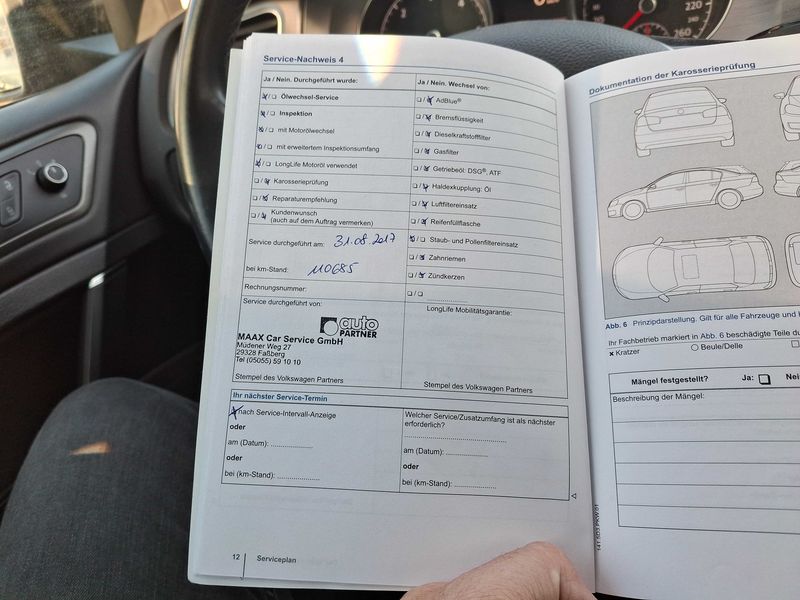 Service-Nachweis 4
Ja / Nein. Durchgeführt wurde:
☒/☐ Ölwechsel-Service
☒/☐ Inspektion
☒/☐ mit Motorölwechsel
☒/☐ mit erweitertem Inspektionsumfang
☒/☐ LongLife Motoröl verwendet
☐/☒ Karosserieprüfung
☐/☒ Reparaturempfehlung
☐/☒ Kundenwunsch
(auch auf dem Auftrag vermerken)
Service durchgeführt am: 31.08.2017
bei km-Stand: 110685
Rechnungsnummer:
Service durchgeführt von:
auto
PARTNER
MAAX Car Service GmbH
Müdener Weg 27
29328 Faßberg
Tel (05055) 59 10 10
Stempel des Volkswagen Partners
Ja / Nein. Wechsel von:
☐/☒ AdBlue®
☐/☒ Bremsflüssigkeit
☐/☒ Dieselkraftstofffilter
☐/☒ Gasfilter
☐/☒ Getriebeöl: DSG®, ATF
☐/☒ Haldexkupplung: Öl
☐/☒ Luftfiltereinsatz
☐/☒ Reifenfüllflasche
☒/☐ Staub- und Pollenfiltereinsatz
☐/☒ Zahnriemen
☐/☒ Zündkerzen
☐/☐ ....................
LongLife Mobilitätsgarantie:
Stempel des Volkswagen Partners
Ihr nächster Service-Termin
☒ nach Service-Intervall-Anzeige
oder
am (Datum): ....................
oder
bei (km-Stand): ....................
Welcher Service/Zusatzumfang ist als nächster
erforderlich?
am (Datum): ....................
oder
bei (km-Stand): ....................
12
Serviceplan
Dokumentation der Karosserieprüfung
Abb. 6 Prinzipdarstellung. Gilt für alle Fahrzeuge und
Ihr Fachbetrieb markiert in Abb. 6 beschädigte Teile
x Kratzer ○ Beule/Delle
Mängel festgestellt? Ja: ☐
Beschreibung der Mängel:
220
160